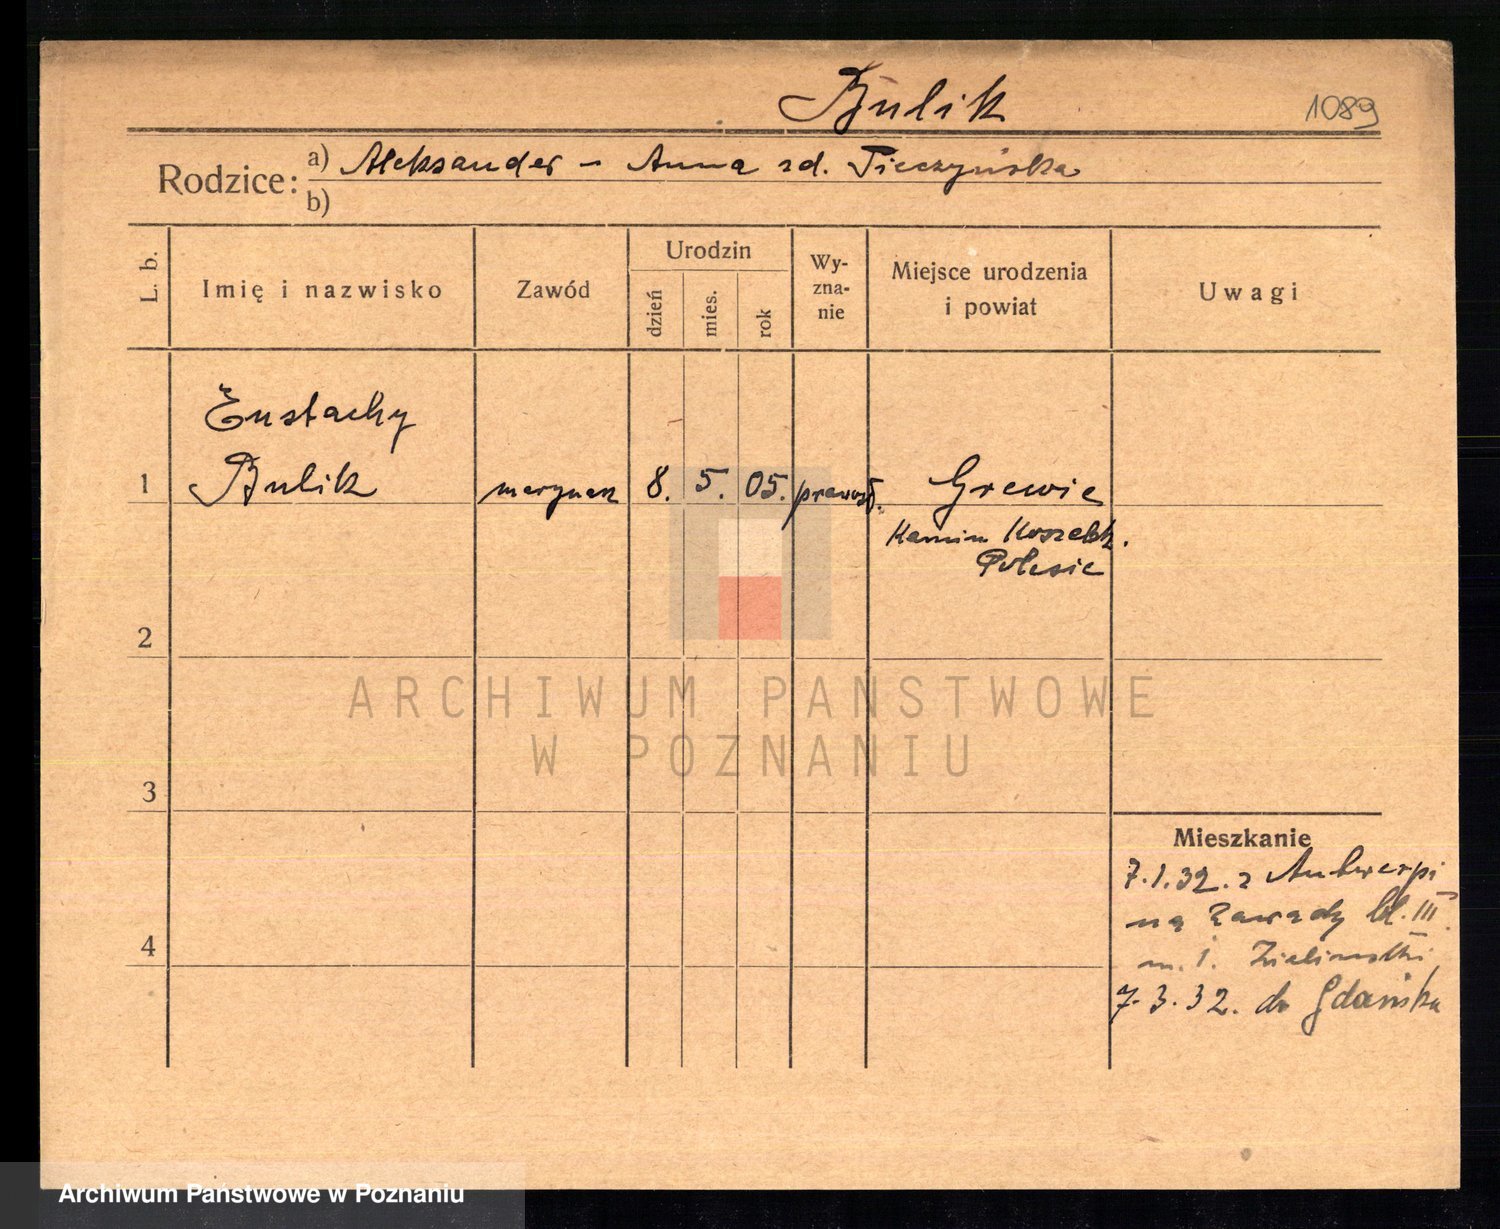 Bulik
1089
Rodzice: a) Aleksander – Anna zd. Pieczyńska
b)
L. b.
Imię i nazwisko
Zawód
Urodzin
dzień
mies.
rok
Wy-
zna-
nie
Miejsce urodzenia
i powiat
Uwagi
Eustachy
1 Bulik marynarz 8. 5. 05. prawosł. Grewie
Kamin Koszelsk.
Polesie
2
3
4
Mieszkanie
7.1.32. z Antwerpi
na Zawady bl. III.
m. 1. Zieliński
7.3.32. do Gdańska
ARCHIWUM PANSTWOWE
W POZNANIU
Archiwum Państwowe w Poznaniu